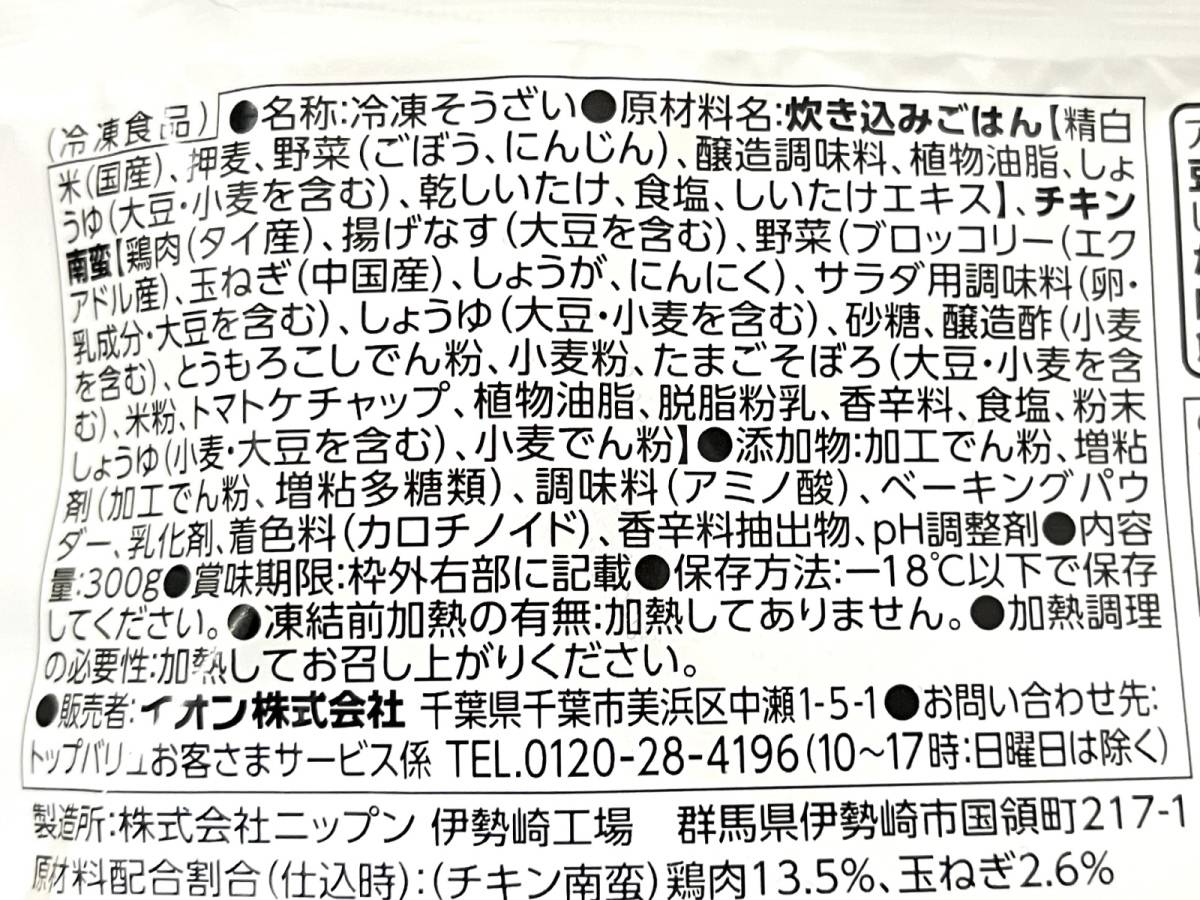 (冷凍食品) ●名称:冷凍そうざい●原材料名:炊き込みごはん【精白
米(国産)、押麦、野菜(ごぼう、にんじん)、醸造調味料、植物油脂、しょ
うゆ(大豆・小麦を含む)、乾しいたけ、食塩、しいたけエキス】、チキン
南蛮【鶏肉(タイ産)、揚げなす(大豆を含む)、野菜(ブロッコリー(エク
アドル産)、玉ねぎ(中国産)、しょうが、にんにく)、サラダ用調味料(卵・
乳成分・大豆を含む)、しょうゆ(大豆・小麦を含む)、砂糖、醸造酢(小麦
を含む)、とうもろこしでん粉、小麦粉、たまごそぼろ(大豆・小麦を含
む)、米粉、トマトケチャップ、植物油脂、脱脂粉乳、香辛料、食塩、粉末
しょうゆ(小麦・大豆を含む)、小麦でん粉】●添加物:加工でん粉、増粘
剤(加工でん粉、増粘多糖類)、調味料(アミノ酸)、ベーキングパウ
ダー、乳化剤、着色料(カロチノイド)、香辛料抽出物、pH調整剤●内容
量:300g●賞味期限:枠外右部に記載●保存方法:－18℃以下で保存
してください。●凍結前加熱の有無:加熱してありません。●加熱調理
の必要性:加熱してお召し上がりください。
●販売者:イオン株式会社 千葉県千葉市美浜区中瀬1-5-1●お問い合わせ先:
トップバリュお客さまサービス係 TEL.0120-28-4196(10～17時:日曜日は除く)
製造所:株式会社ニップン 伊勢崎工場 群馬県伊勢崎市国領町217-1
原材料配合割合(仕込時):(チキン南蛮)鶏肉13.5%、玉ねぎ2.6%